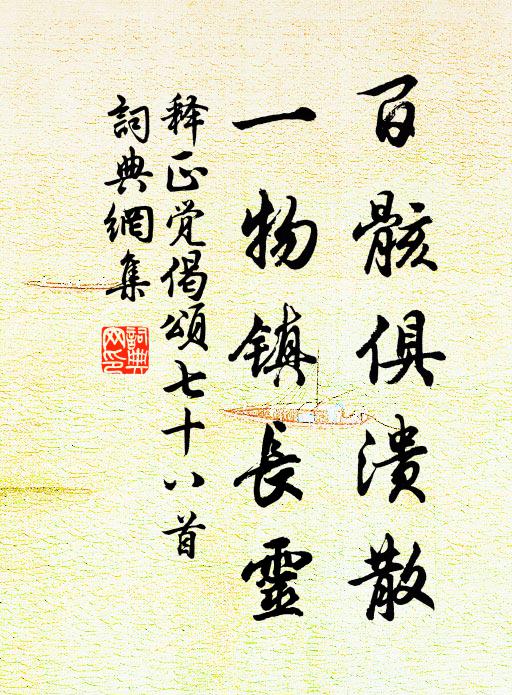 百骸俱潰散
一物鎮長靈
释正觉偈頌七十八首
詞典網集
詞典網印